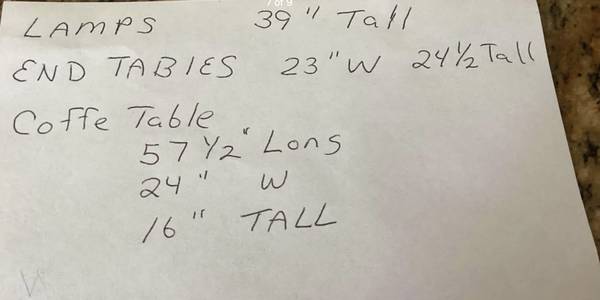 7 of 9
LAMPS 39" Tall
END TABlES 23" W 24½ Tall
Coffe Table
57 ½" Long
24" W
16" TALL